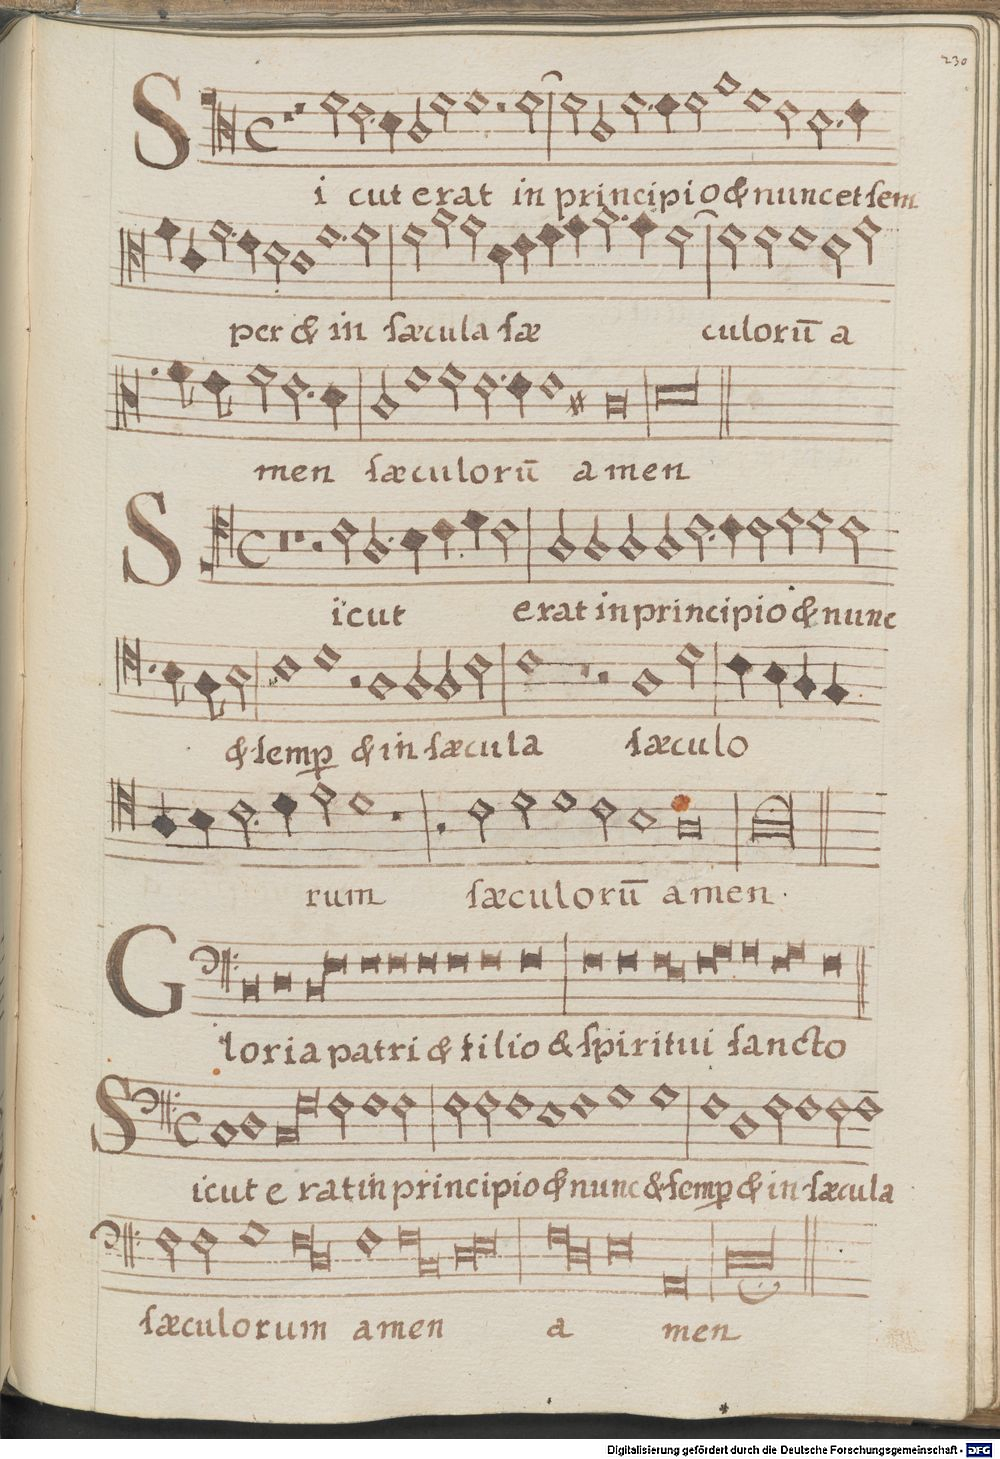 230
Si cut erat in principio & nunc et ſem
per & in ſæcula ſæ culorū a
men ſæculorū amen
Sicut erat in principio & nunc
& ſemꝑ & in ſæcula ſæculo
rum ſæculorū amen.
Gloria patri & filio & ſpiritui ſancto
Sicut erat in principio & nunc & ſemꝑ & in ſæcula
ſæculorum amen a men
Digitalisierung gefördert durch die Deutsche Forschungsgemeinschaft - DFG